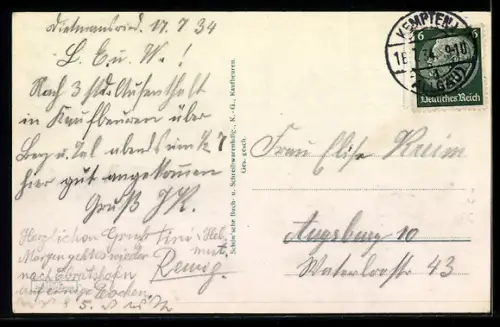 Dietmannsried. 17. 7. 34
L. E. u. W.!
Nach 3 std. Aufenthalt
in Kaufbeuren über
Berg u. Tal abends um ½ 7
hier gut angekommen
Gruß J K.
Herzlichen Gruß Tini u. Hel-
mut.
Morgen geht es wieder
nach
auf einige Wochen.
Schön'sche Buch- u. Schreibwarenhdlg., K.-G., Kaufbeuren.
Ges. gesch.
KEMPTEN
9-10
6 6
Deutsches Reich
Frau Elise
Augsburg 10
Waterloostr 43